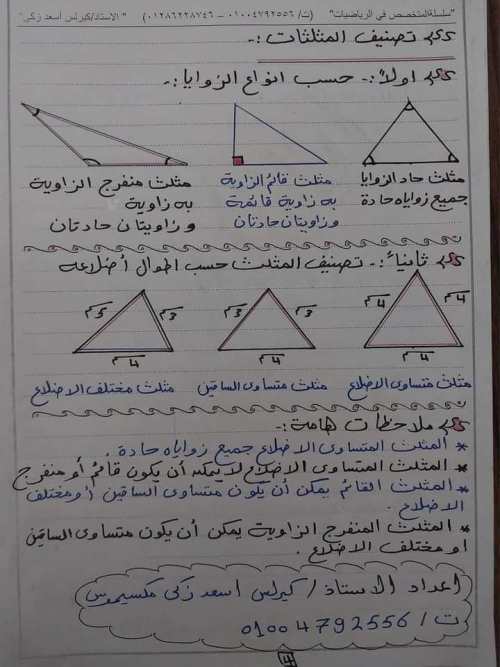 "سلسلة المتخصص في الرياضيات" (ت/ ٠١٠٠٤٧٩٢٥٥٦ – ٠١٢٨٦٢٢٨٧٤٦) "الاستاذ/كيرلس أسعد زكى"
تصنيف المثلثات :-
اولاً :- حسب انواع الزوايا :-
مثلث حاد الزوايا
جميع زواياه حادة
مثلث قائم الزاوية
به زاوية قائمة
وزاويتان حادتان
مثلث منفرج الزاوية
به زاوية
وزاويتان حادتان
ثانياً :- تصنيف المثلث حسب اطوال أضلاعه
4سم 4سم 4سم
3سم 3سم 4سم
5سم 3سم 4سم
مثلث متساوى الاضلاع
مثلث متساوى الساقين
مثلث مختلف الاضلاع
ملاحظات هامة :-
* المثلث المتساوى الاضلاع جميع زواياه حادة .
* المثلث المتساوى الاضلاع لا يمكن أن يكون قائم أو منفرج
* المثلث القائم يمكن أن يكون متساوى الساقين أو مختلف
الاضلاع .
* المثلث المنفرج الزاوية يمكن أن يكون متساوى الساقين
او مختلف الاضلاع .
اعداد الاستاذ / كيرلس اسعد زكى مكسيموس
ت / 01004792556